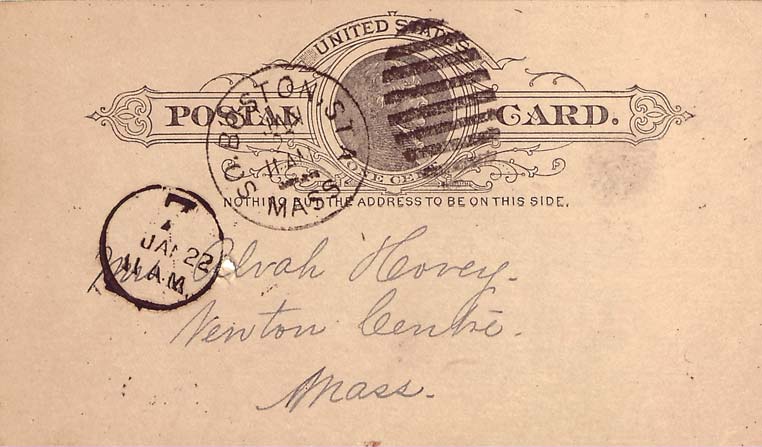 UNITED STATES
POSTAL CARD.
ONE CENT
NOTHING BUT THE ADDRESS TO BE ON THIS SIDE.
BOSTON. ST A
MASS
11 AM
7
JAN 22
11 A.M.
Mrs Alvah Hovey.
Newton Centre.
Mass.